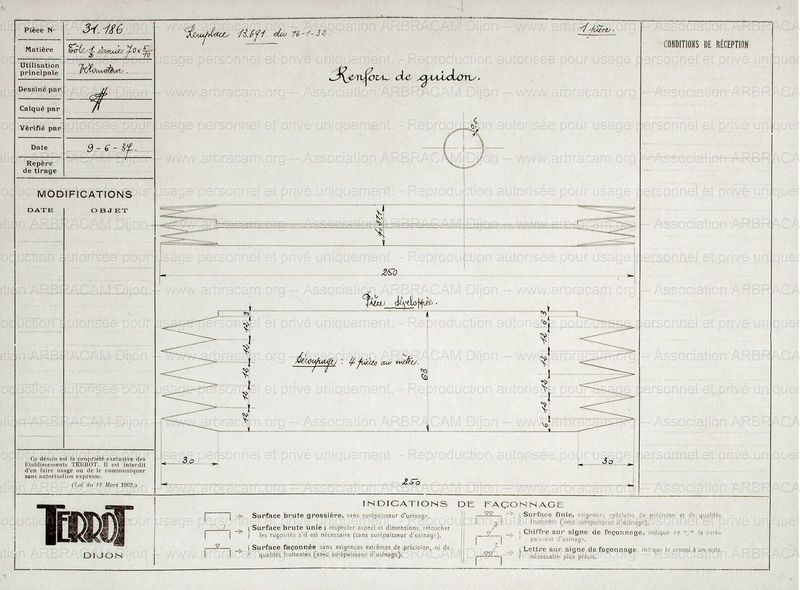 Pièce N° 31.186
Matière Tôle 1/2 écrouie 70 x 5/10
Utilisation principale Vélomoteur.
Dessiné par
Calqué par
Vérifié par
Date 9-6-37.
Repère de tirage
MODIFICATIONS
DATE OBJET
Remplace 13.691 du 16-1-32
1 pièce.
CONDITIONS DE RÉCEPTION
Renfort de guidon.
250
Pièce développée.
Découpage : 4 pièces au mètre.
12 12 12 12 12 3
63
6 12 12 12 12 6 3
30
30
250
Ce dessin est la propriété exclusive des
Etablissements TERROT. Il est interdit
d'en faire usage ou de le communiquer
sans autorisation expresse.
(Loi du 11 Mars 1902.)
TERROT
DIJON
INDICATIONS DE FAÇONNAGE
Surface brute grossière, sans surépaisseur d'usinage.
Surface brute unie; respecter aspect et dimensions, retoucher
les rugosités s'il est nécessaire (sans surépaisseur d'usinage).
Surface façonnée sans exigences extrêmes de précision, ni de
qualités frottantes (avec surépaisseur d'usinage).
Surface finie, exigences spéciales de précision et de qualités
frottantes (avec surépaisseur d'usinage).
Chiffre sur signe de façonnage, indique en "/" la surépaisseur d'usinage.
Lettre sur signe de façonnage, indique le renvoi à une note,
nécessaire plus précis.
www.arbracam.org -- Association ARBRACAM Dijon -- Reproduction autorisée pour usage personnel et privé uniquement.